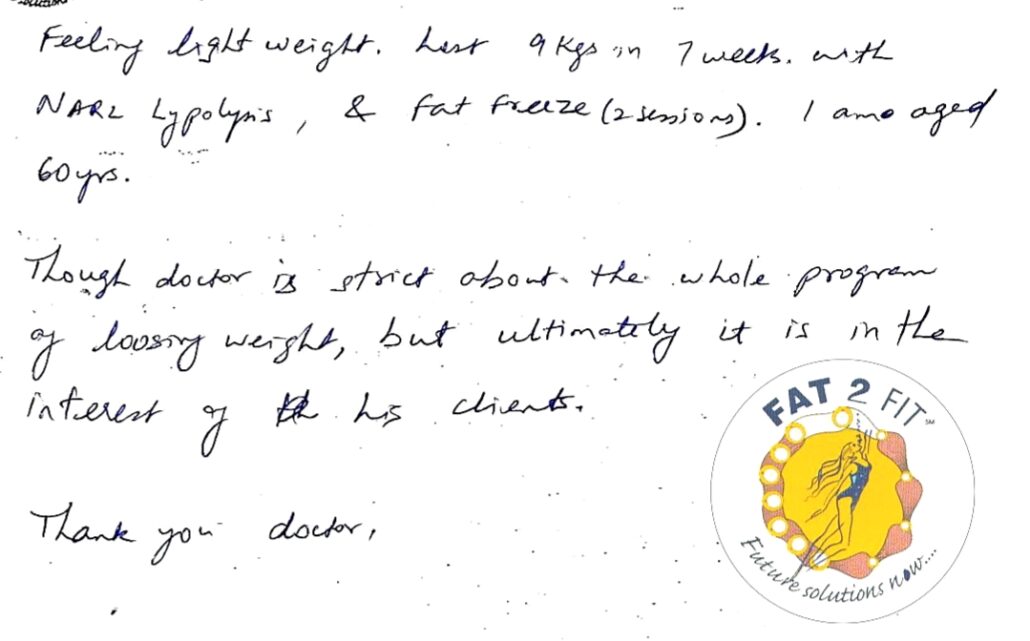 Feeling light weight. Lost 9 Kgs in 7 weeks. with
NARL Lypolysis, & Fat Freeze (2 sessions). I am aged
60 yrs.
Though doctor is strict about the whole program
of loosing weight, but ultimately it is in the
interest of his clients.
Thank you doctor,
FAT 2 FIT℠
Future solutions now....